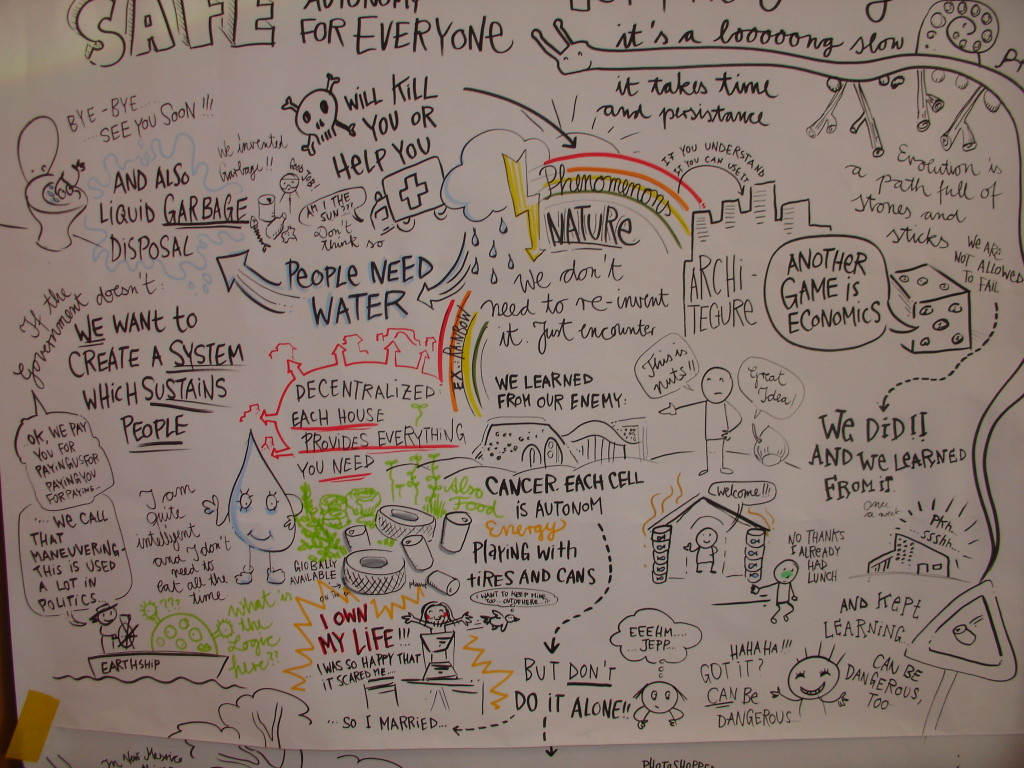 SAFE
AUTONOMY
FOR EVERYONE
it's a looooong slow
it takes time
and persistance
BYE-BYE...
...SEE YOU SOON!!!
AND ALSO
LIQUID GARBAGE
DISPOSAL
we invented
Garbage!!
GOOD JOB!
WILL KILL
YOU OR
HELP YOU
AM I THE
SUN???
Don't
think so
PEOPLE NEED
WATER
Phenomenons
NATURE
we don't
need to re-invent
it. Just encounter
IF YOU UNDERSTAND
YOU CAN USE IT
ARCHI-
TEGURE
Evolution is
a path full of
stones and
sticks
WE ARE
NOT ALLOWED
TO FAIL
ANOTHER
GAME IS
ECONOMICS
If the
Government doesn't:
WE WANT to
CREATE A SYSTEM
WHICH SUSTAINS
PEOPLE
OK, WE PAY
YOU FOR
PAYING US FOR
PAYING YOU
FOR PAYING...
... WE CALL
THAT
MANEUVERING-
THIS IS USED
A LOT IN
POLITICS...
DECENTRALIZED:
EACH HOUSE
PROVIDES EVERYTHING
YOU NEED
EX. RAINBOW
WE LEARNED
FROM OUR ENEMY:
This is
nuts!!
Great
Idea!
WE DID!!
AND WE LEARNED
FROM IT.
I am
quite
inteligent
and I don't
need to
eat all the
time
Also
Food
CANCER. EACH CELL
IS AUTONOM
Energy
PLAYING WITH
TIRES AND CANS
GLOBALLY
AVAILABLE
Welcome!!!
NO THANKS
I ALREADY
HAD
LUNCH
once
a week
Phh
sssHh
I WANT TO KEEP MINE,
TOO - OUTOFHERE!!!
I OWN
MY LIFE!!!
I WAS SO HAPPY THAT
IT SCARED ME...
...SO I MARRIED...
???
what is
the
Logic
here??
EARTHSHIP
BUT DON'T
DO IT ALONE!!
EEEHM....
JEPP...
HAHAHA!!!
GOT IT?
CAN BE
DANGEROUS...
AND KEPT
LEARNING.
CAN BE
DANGEROUS,
TOO
In New Mexico
PHOTOSHOPPED